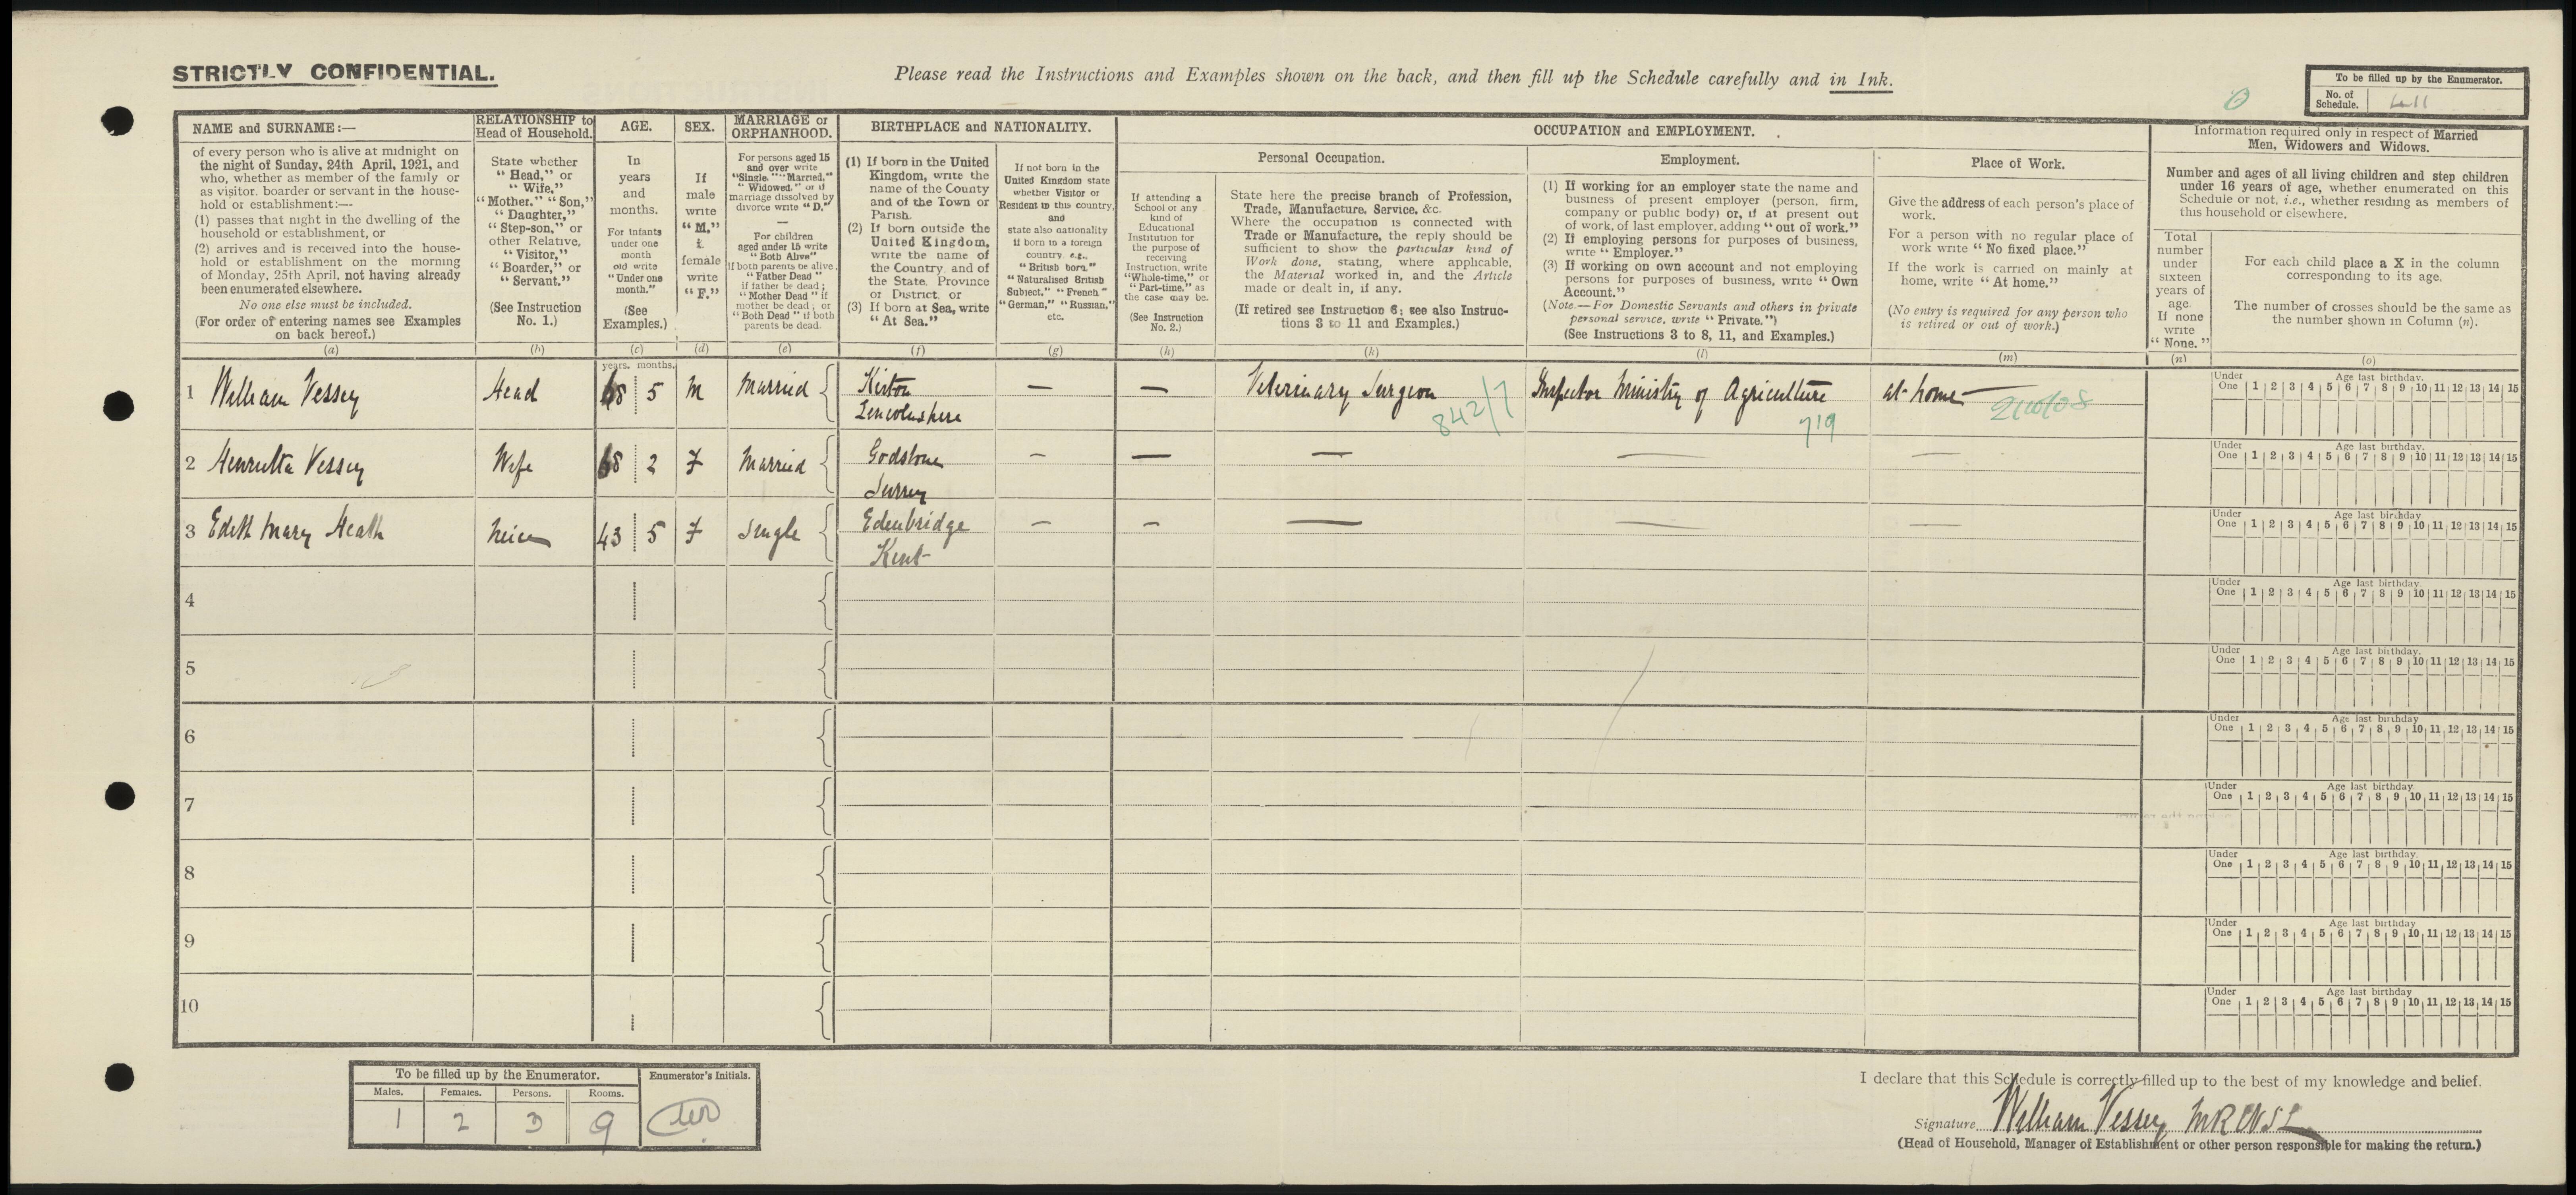 STRICTLY CONFIDENTIAL.
Please read the Instructions and Examples shown on the back, and then fill up the Schedule carefully and in Ink.
To be filled up by the Enumerator.
No. of Schedule.
NAME and SURNAME:—
of every person who is alive at midnight on
the night of Sunday, 24th April, 1921, and
who, whether as member of the family or
as visitor, boarder or servant in the house-
hold or establishment:—
(1) passes that night in the dwelling of the
household or establishment, or
(2) arrives and is received into the house-
hold or establishment on the morning
of Monday, 25th April, not having already
been enumerated elsewhere.
No one else must be included.
(For order of entering names see Examples
on back hereof.)
(a)
RELATIONSHIP to
Head of Household.
State whether
"Head," or
"Wife,"
"Mother," "Son,"
"Daughter,"
"Step-son," or
other Relative,
"Visitor,"
"Boarder," or
"Servant."
(See Instruction
No. 1.)
(b)
AGE.
In
years
and
months.
For infants
under one
month
old write
"Under one
month."
(See
Examples.)
(c)
SEX.
If
male
write
"M."
female
write
"F."
(d)
MARRIAGE or
ORPHANHOOD.
For persons aged 15
and over write
"Single," "Married,"
"Widowed," or if
marriage dissolved by
divorce write "D."
—
For children
aged under 15 write
"Both Alive"
if both parents be alive,
"Father Dead"
if father be dead;
"Mother Dead" if
mother be dead; or
"Both Dead" if both
parents be dead.
(e)
BIRTHPLACE and NATIONALITY.
(1) If born in the United
Kingdom, write the
name of the County
and of the Town or
Parish.
(2) If born outside the
United Kingdom,
write the name of
the Country, and of
the State, Province
or District, or
(3) If born at Sea, write
"At Sea."
(f)
If not born in the
United Kingdom state
whether Visitor or
Resident in this country,
and
state also nationality
if born in a foreign
country, e.g.,
"British born,"
"Naturalised British
Subject," "French"
"German," "Russian,"
etc.
(g)
OCCUPATION and EMPLOYMENT.
If attending a
School or any
kind of
Educational
Institution for
the purpose of
receiving
Instruction, write
"Whole-time," or
"Part-time," as
the case may be.
(See Instruction
No. 2.)
(h)
Personal Occupation.
State here the precise branch of Profession,
Trade, Manufacture, Service, &c.
Where the occupation is connected with
Trade or Manufacture, the reply should be
sufficient to show the particular kind of
Work done, stating, where applicable,
the Material worked in, and the Article
made or dealt in, if any.
(If retired see Instruction 6; see also Instruc-
tions 3 to 11 and Examples.)
(k)
Employment.
(1) If working for an employer state the name and
business of present employer (person, firm,
company or public body) or, if at present out
of work, of last employer, adding "out of work."
(2) If employing persons for purposes of business,
write "Employer."
(3) If working on own account and not employing
persons for purposes of business, write "Own
Account."
(Note.—For Domestic Servants and others in private
personal service, write "Private.")
(See Instructions 3 to 8, 11, and Examples.)
(l)
Place of Work.
Give the address of each person's place of
work.
For a person with no regular place of
work write "No fixed place."
If the work is carried on mainly at
home, write "At home."
(No entry is required for any person who
is retired or out of work.)
(m)
Information required only in respect of Married
Men, Widowers and Widows.
Number and ages of all living children and step children
under 16 years of age, whether enumerated on this
Schedule or not, i.e., whether residing as members of
this household or elsewhere.
Total
number
under
sixteen
years of
age.
If none
write
"None."
(n)
For each child place a X in the column
corresponding to its age.
The number of crosses should be the same as
the number shown in Column (n).
(o)
years. months.
1 William Vessey Head 68 5 M Married Kirton Lincolnshire — — Veterinary Surgeon 842/7 Inspector Ministry of Agriculture 719 at home
Under One Age last birthday. 1 2 3 4 5 6 7 8 9 10 11 12 13 14 15
2 Henrietta Vessey Wife 68 2 F Married Godstone Surrey — — — — —
Under One Age last birthday. 1 2 3 4 5 6 7 8 9 10 11 12 13 14 15
3 Edith Mary Heath Neice 43 5 F Single Edenbridge Kent — — — — —
Under One Age last birthday 1 2 3 4 5 6 7 8 9 10 11 12 13 14 15
4
Under One Age last birthday. 1 2 3 4 5 6 7 8 9 10 11 12 13 14 15
5
Under One Age last birthday. 1 2 3 4 5 6 7 8 9 10 11 12 13 14 15
6
Under One Age last birthday 1 2 3 4 5 6 7 8 9 10 11 12 13 14 15
7
Under One Age last birthday 1 2 3 4 5 6 7 8 9 10 11 12 13 14 15
8
Under One Age last birthday. 1 2 3 4 5 6 7 8 9 10 11 12 13 14 15
9
Under One Age last birthday 1 2 3 4 5 6 7 8 9 10 11 12 13 14 15
10
Under One Age last birthday 1 2 3 4 5 6 7 8 9 10 11 12 13 14 15
To be filled up by the Enumerator. Enumerator's Initials.
Males. Females. Persons. Rooms.
1 2 3 9
I declare that this Schedule is correctly filled up to the best of my knowledge and belief.
Signature William Vessey MRCVSL
(Head of Household, Manager of Establishment or other person responsible for making the return.)